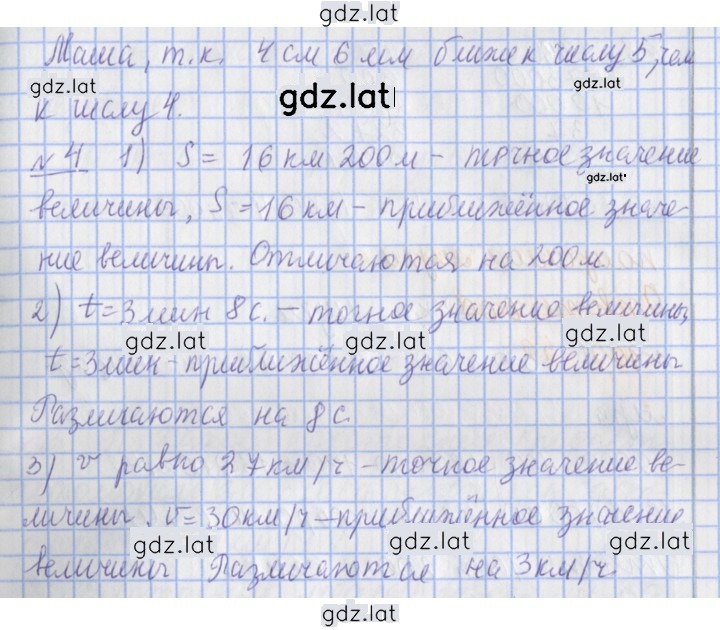 gdz.lat
Маша, т.к. 4 см 6 мм ближе к числу 5, чем
gdz.lat gdz.lat
к числу 4.
gdz.lat
№4 1) S = 16 км 200 м – точное значение
gdz.lat
величины, S = 16 км – приближённое значе-
ние величины. Отличаются на 200 м.
2) t = 3 мин 8 с. – точное значение величины,
gdz.lat gdz.lat
t = 3 мин – приближённое значение величины
Различаются на 8 с.
3) v равно 27 км/ч – точное значение ве-
личины. v = 30 км/ч – приближённое значение
gdz.lat gdz.lat gdz.lat
величины Различаются на 3 км/ч
gdz.lat